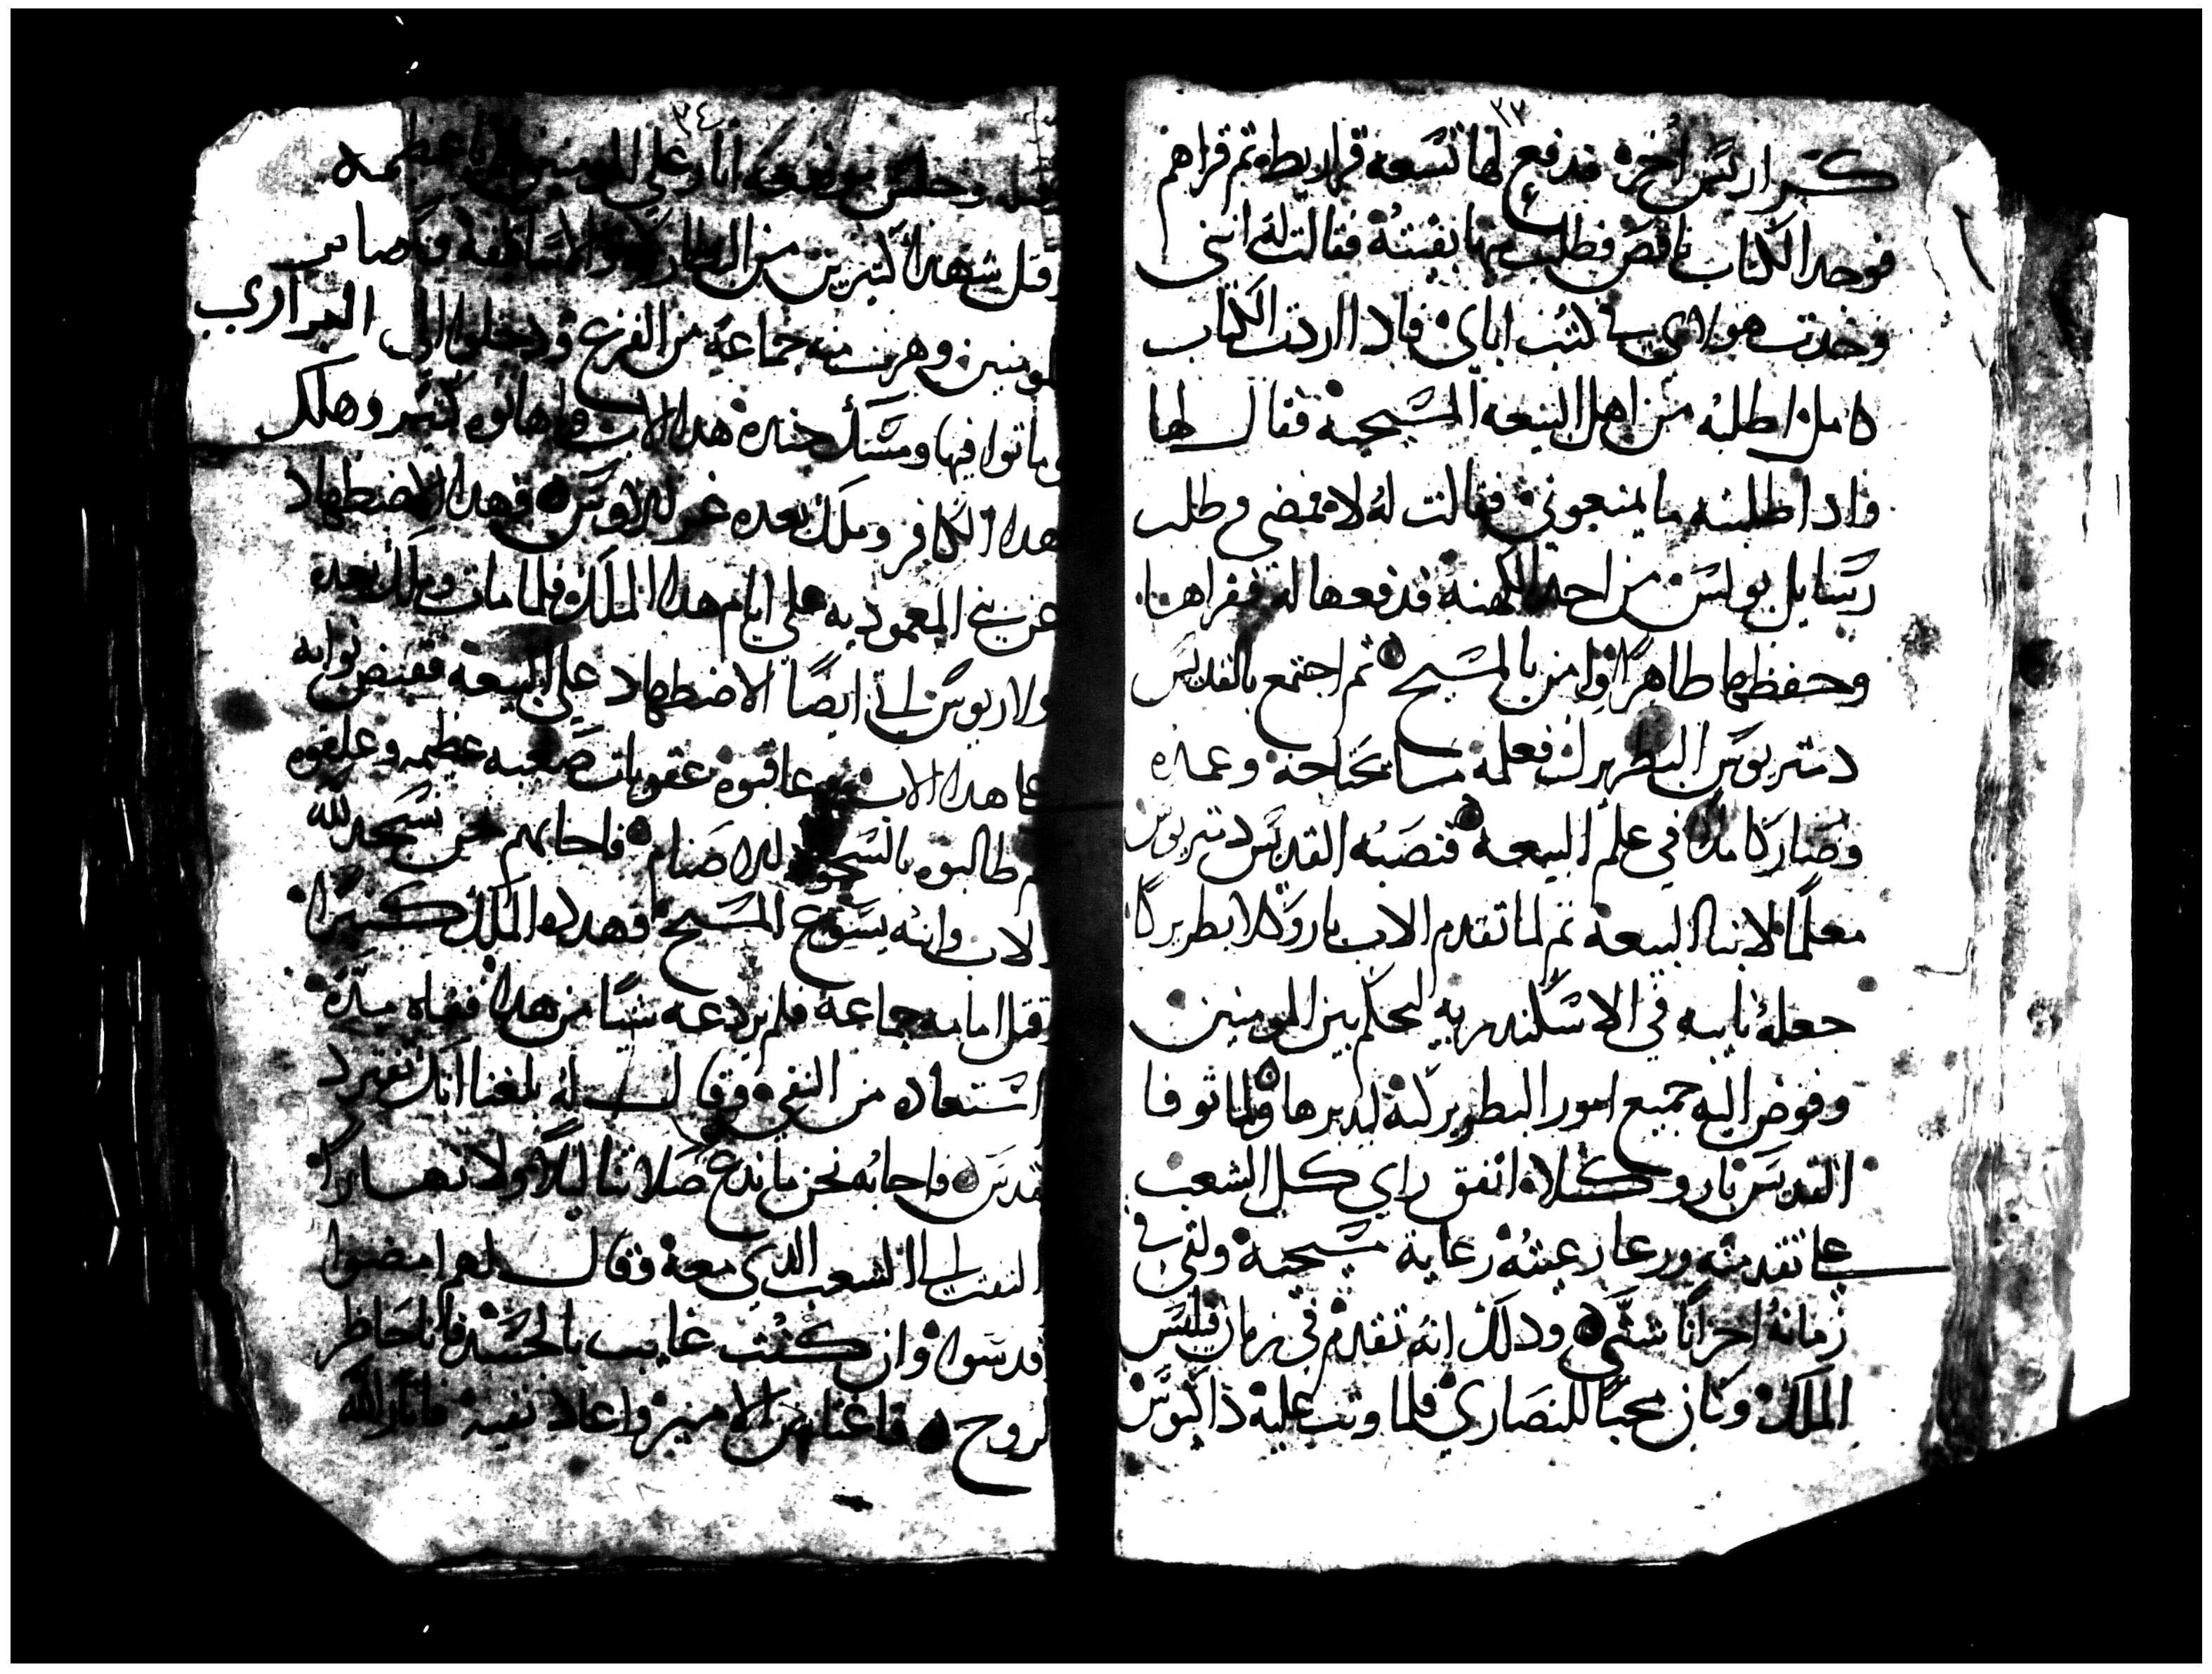 ٣٣
كراريس أخره فدفع لها تسعة قراريط وتم قراهم
فوجد الكتاب ناقص فطلب منها بقيته فقالت له انني
وجدت هولاي في كتب اباي فادا اردت الكتاب
كامل اطلبه من اهل البيعه المسيحية فقال لها
وادا طلبته ما يمنعوني فقالت له لا فمضي وطلب
رسايل بولس من احد الكهنة فدفعها له فقراها
وحفظها طاهرا وامن بالمسيح تم اجتمع بالقديس
دمتريوس البطريرك فعلمه ما يحتاجه وعمده
وصار كاملا في علم البيعه فنصبه القديس دمتريوس
معلما لابنا البيعة تم لما تقدم الاب ياروكلا بطريركا
جعله نايبه في الاسكندريه ليحكم بين المومنين
وفوض اليه جميع امور البطريركية ليدبرها ولما توفا
القديس ياروكلا اتفق راي كل الشعب
علي تقدمته ورعا رعيته رعاية مسيحية ولقي في
زمانه احزانا شتي ودلك انه تقدم في زمان فيلبس
الملك وكان محبا للنصاري فلما وتب عليه داكيوس
٣٤
وجلس موضعه اتار علي المومنين عظيمه
وقتل شهدا كتيرين من البطاركه والاساقفه
المومنين وهربت منه جماعة من الفزع ودخلوا الي البراري
وماتوا فيها ومسك جنده هدا الاب كتير وهلك
هدا الكافر وملك بعده غرللاوس فهدا الاضطهاد
عن بني المعموديه علي ايام هدا الملك فلما مات وملك بعده
ولاريوس اتي ايضا الاضطهاد علي البيعه فقبض نوابه
علي هدا الاب عاقبوه عقوبات صعبه عظيمه وعرفوه
طالبوه بالسجود للاصنام فاجابهم نحن نسجد لله
الاب وابنه يسوع المسيح فهدده الملك كتيرا
وقتل امامه جماعة فلم يردعه شيا من هدا فنفاه مدة
استعاده من النفي وقال له بلغنا انك تنفرد
تقدس فاجابه نحن ما ندع صلاتنا ليلا ولا نهارا
التفت الي الشعب الدي معه وقال لهم امضوا
قدسوا وان كنت غايب بالجسد فانا حاظر
بالروح فاغتاظ الامير واعاد نفيه